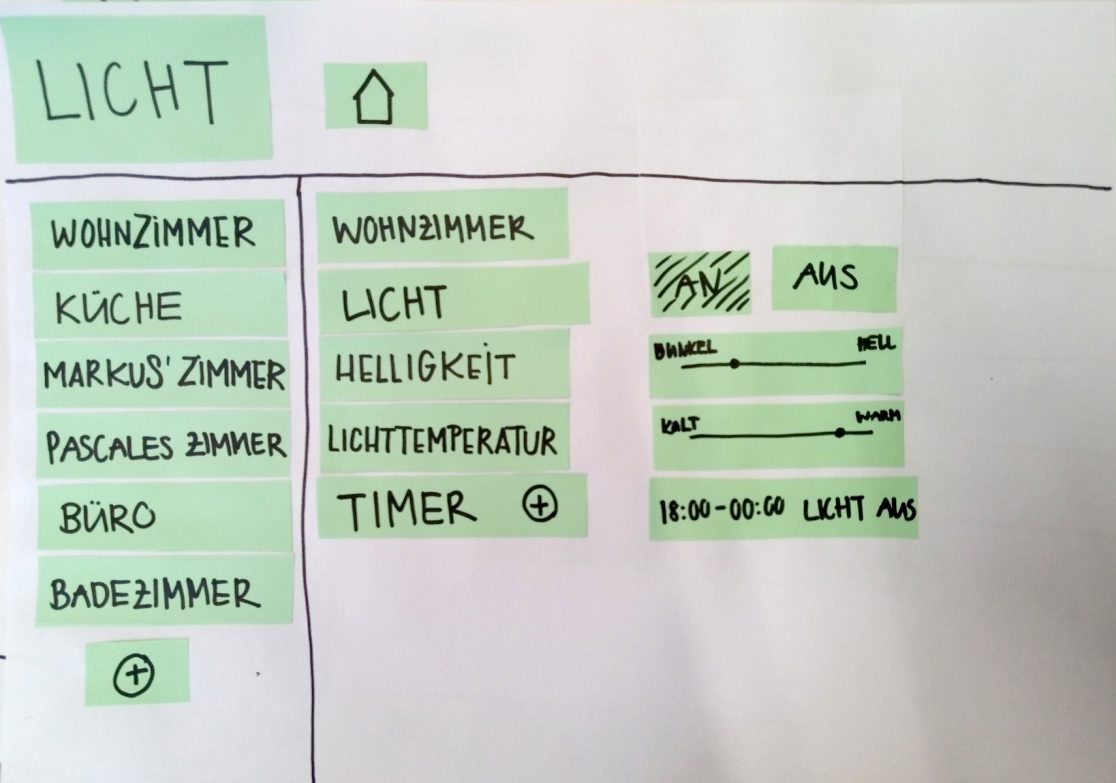 LICHT
WOHNZIMMER
KÜCHE
MARKUS' ZIMMER
PASCALES ZIMMER
BÜRO
BADEZIMMER
+
WOHNZIMMER
LICHT
AN AUS
HELLIGKEIT
DUNKEL HELL
LICHTTEMPERATUR
KALT WARM
TIMER +
18:00-00:00 LICHT AUS